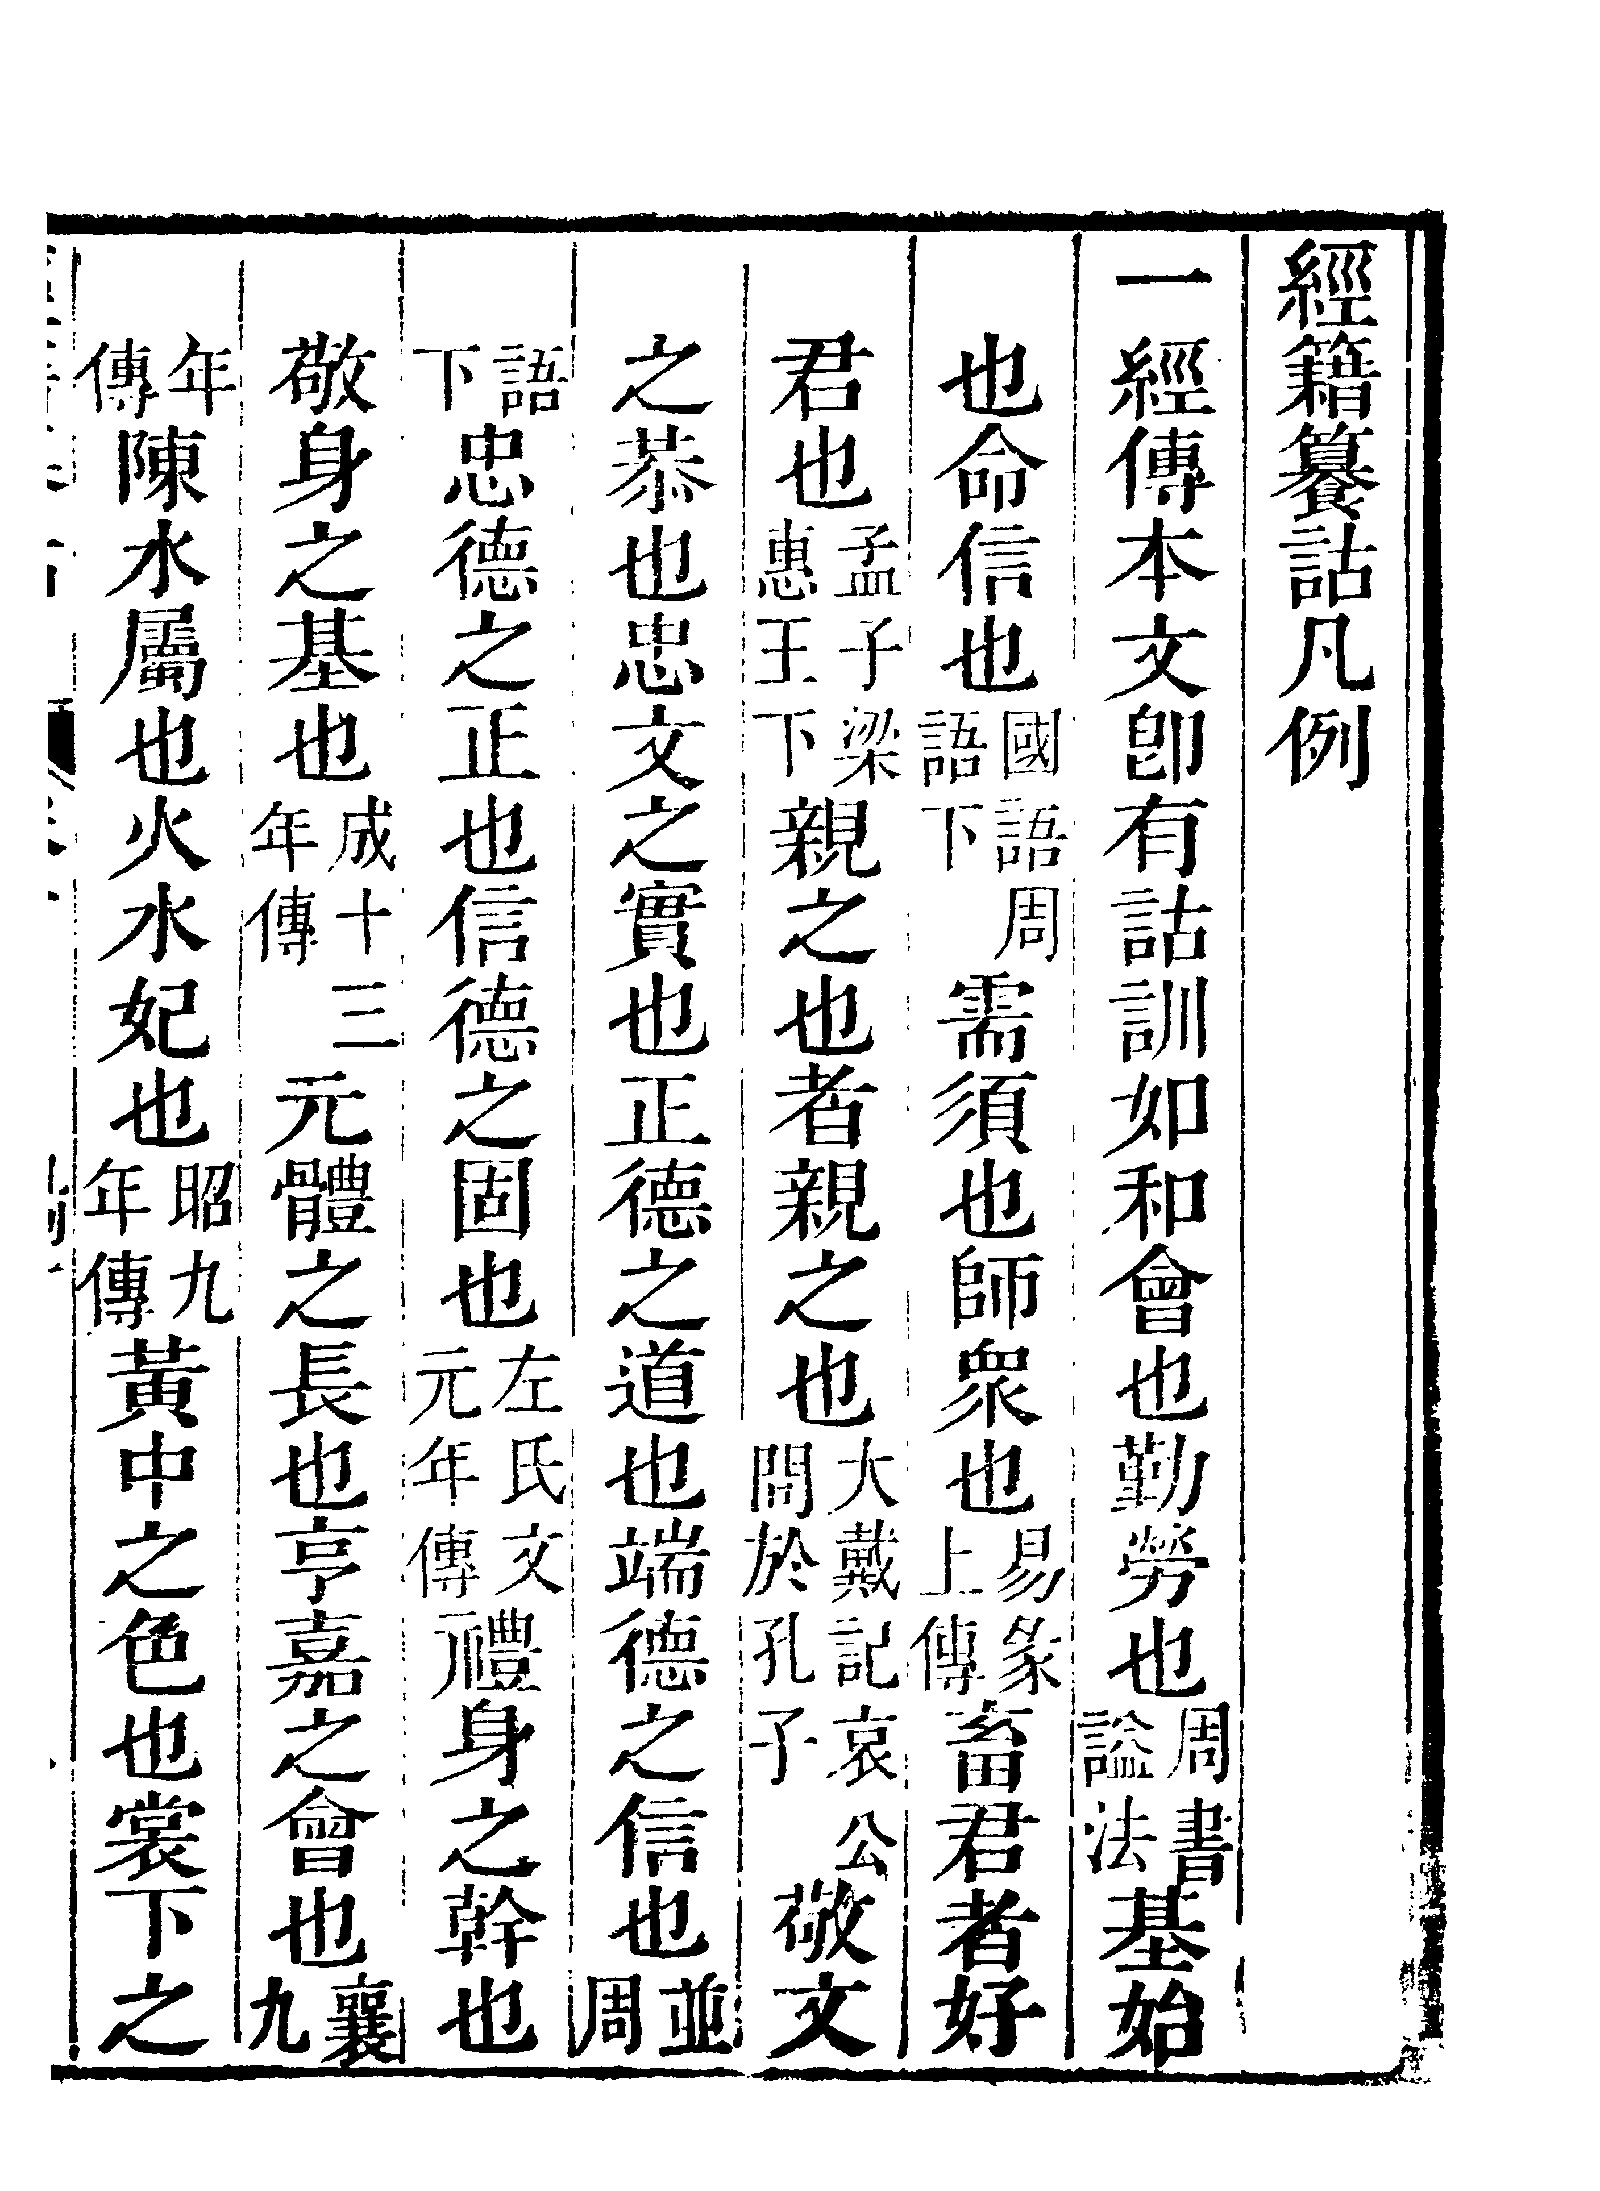 經籍籑詁凡例
一經傳本文卽有詁訓如和會也勤勞也周書諡法基始
也命信也國語周語下需須也師眾也易彖上傳畜君者好
君也孟子梁惠王下親之也者親之也大戴記哀公問於孔子敬文
之恭也忠文之實也正德之道也端德之信也並周
語下忠德之正也信德之固也左氏文元年傳禮身之幹也
敬身之基也成十三年傳元體之長也亨嘉之會也襄九
年傳陳水屬也火水妃也昭九年傳黃中之色也裳下之